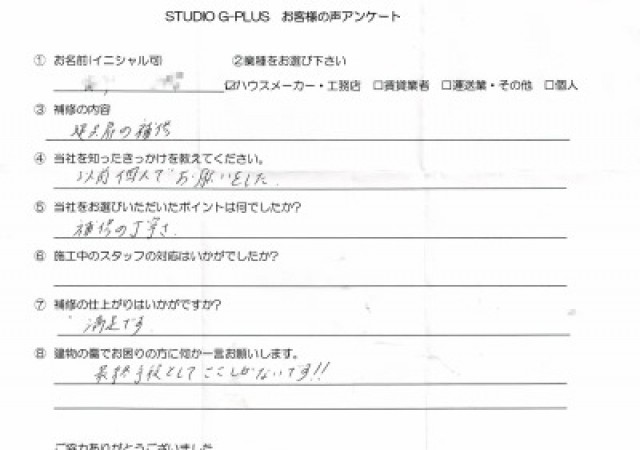 STUDIO G-PLUS お客様の声アンケート
① お名前(イニシャル可) ②業種をお選び下さい
☑ハウスメーカー・工務店 □賃貸業者 □運送業・その他 □個人
③ 補修の内容
の補修
④ 当社を知ったきっかけを教えてください。
以前個人でお願いをした
⑤ 当社をお選びいただいたポイントは何でしたか?
補修の丁寧さ
⑥ 施工中のスタッフの対応はいかがでしたか?
⑦ 補修の仕上がりはいかがですか?
満足です
⑧ 建物の傷でお困りの方に何か一言お願いします。
最終手段としてここしかないです!!
ご協力ありがとうございました